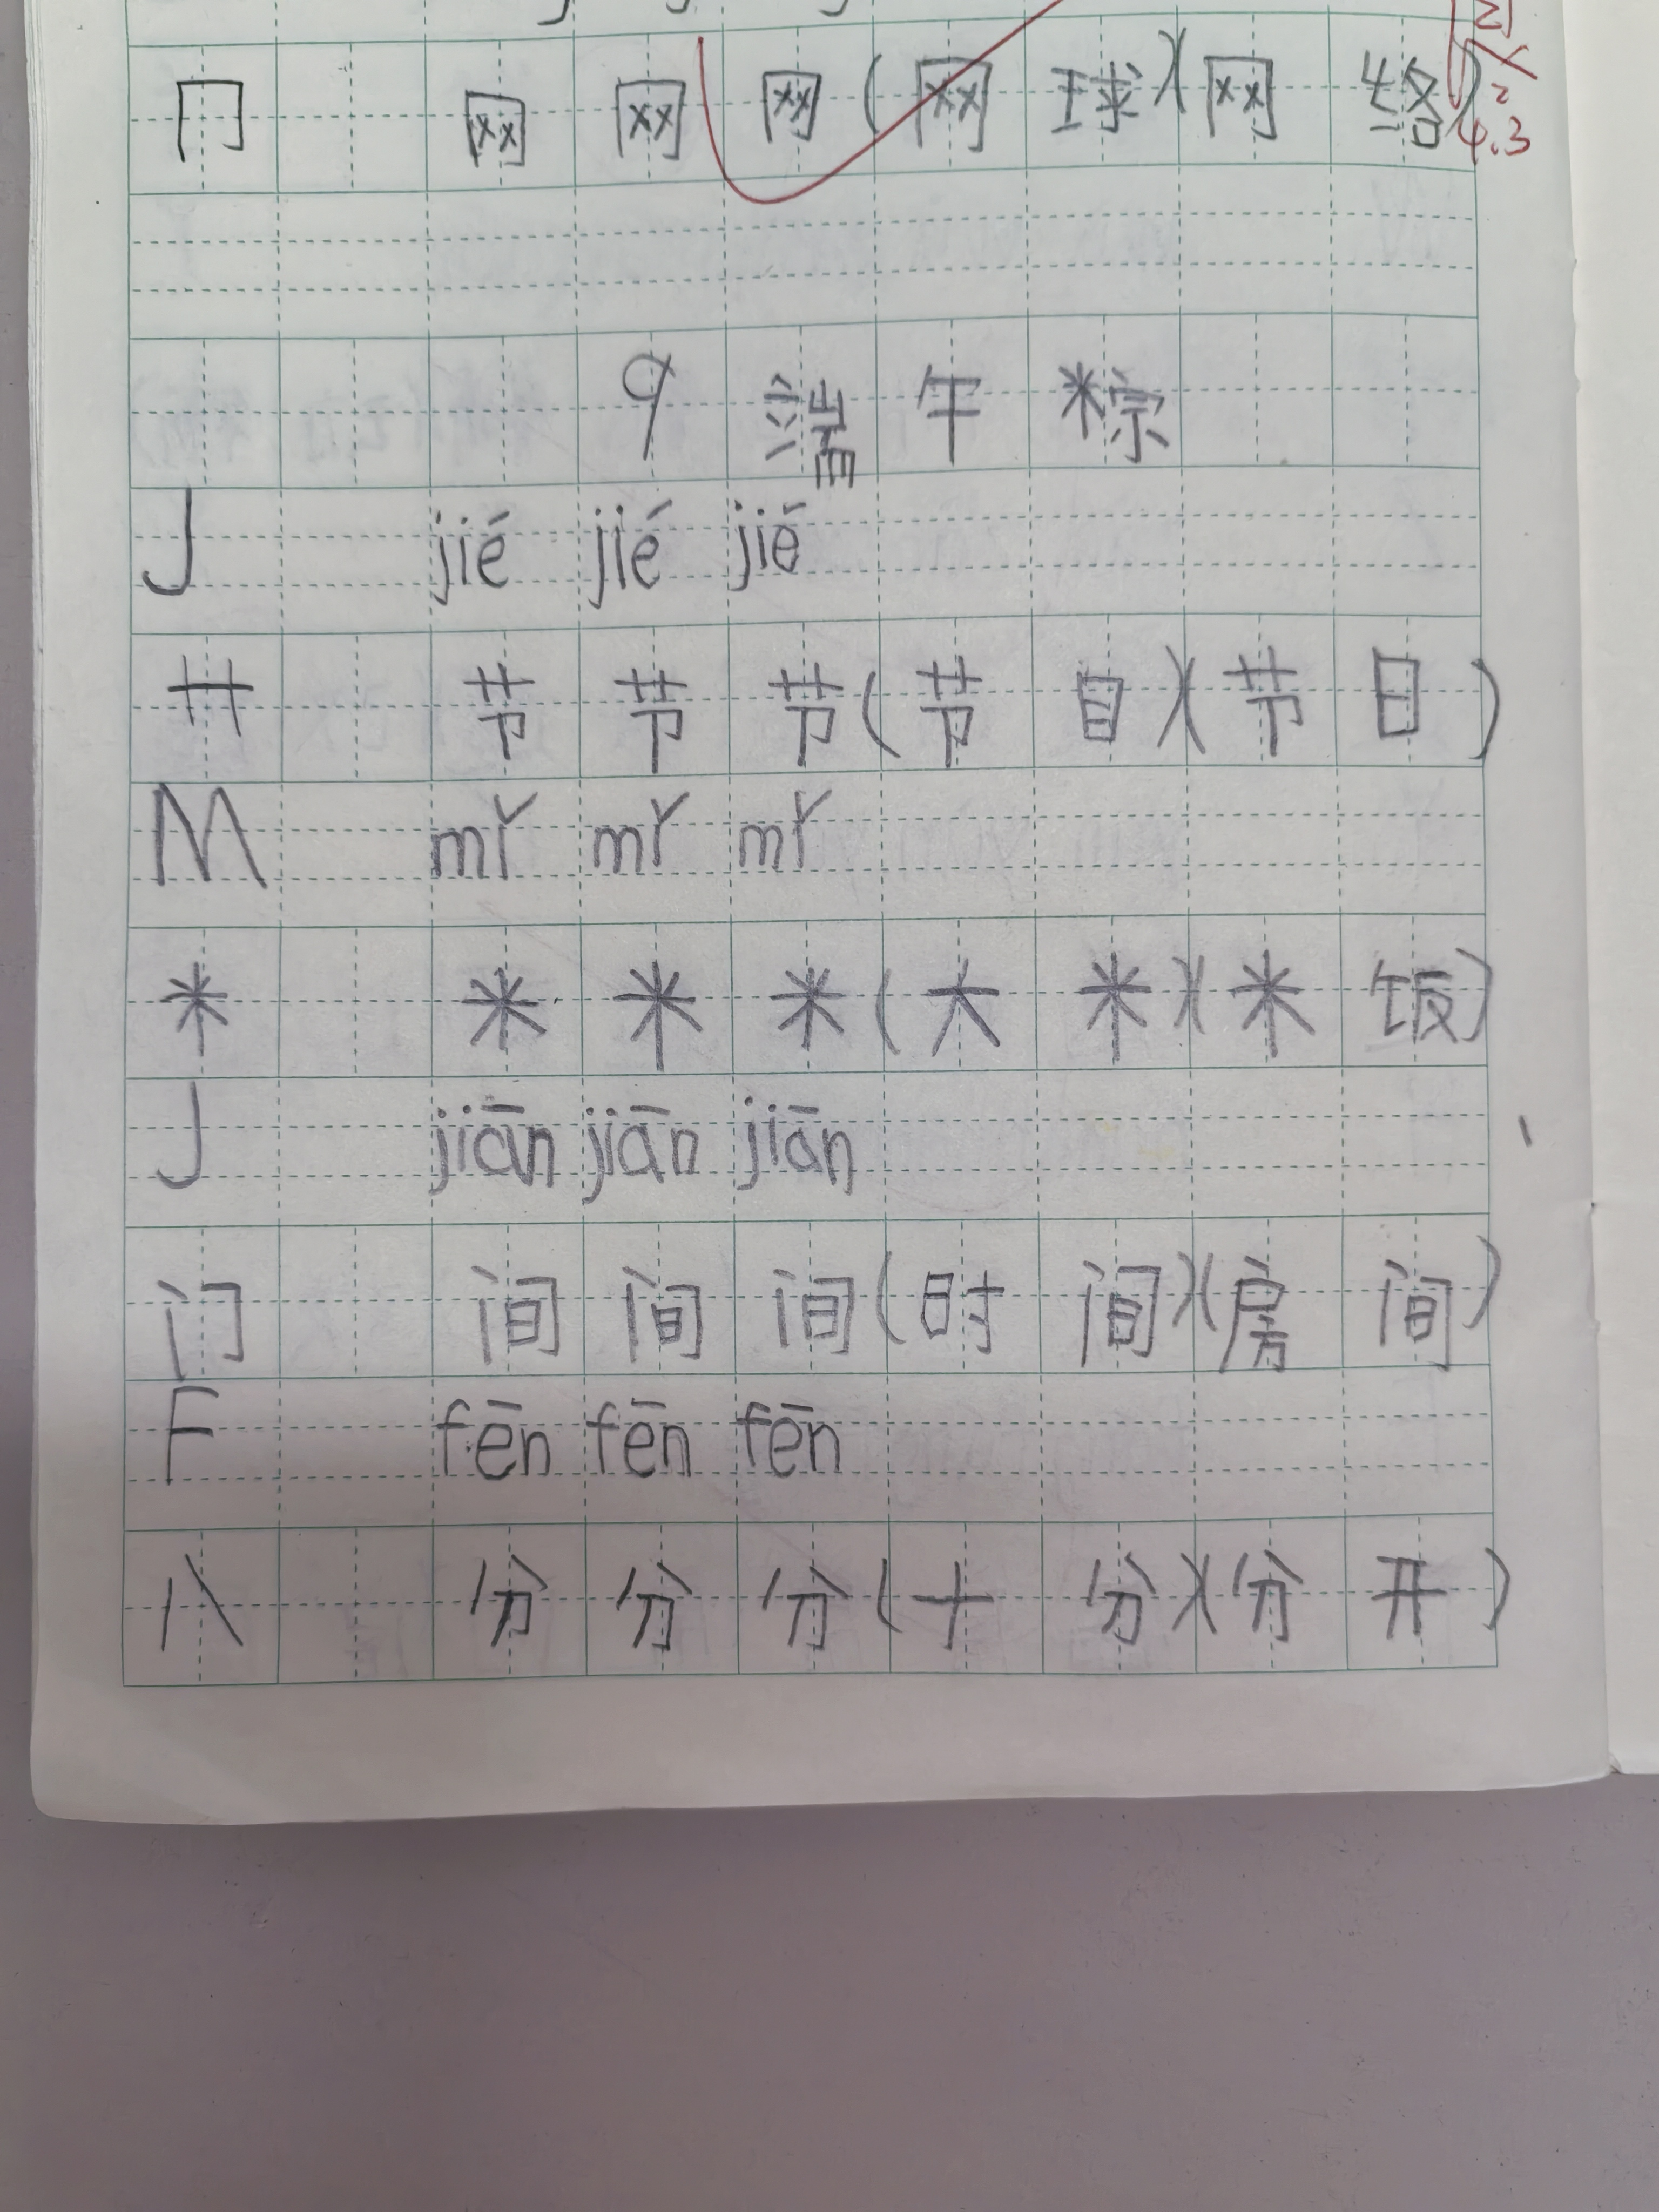 冂 网 网 网 (网 球)(网 络)
9 端 午 粽
J jié jié jié
艹 节 节 节 (节 目)(节 日)
M mǐ mǐ mǐ
米 米 米 米 (大 米)(米 饭)
J jiān jiān jiān
门 间 间 间 (时 间)(房 间)
F fēn fēn fēn
八 分 分 分 (十 分)(分 开)